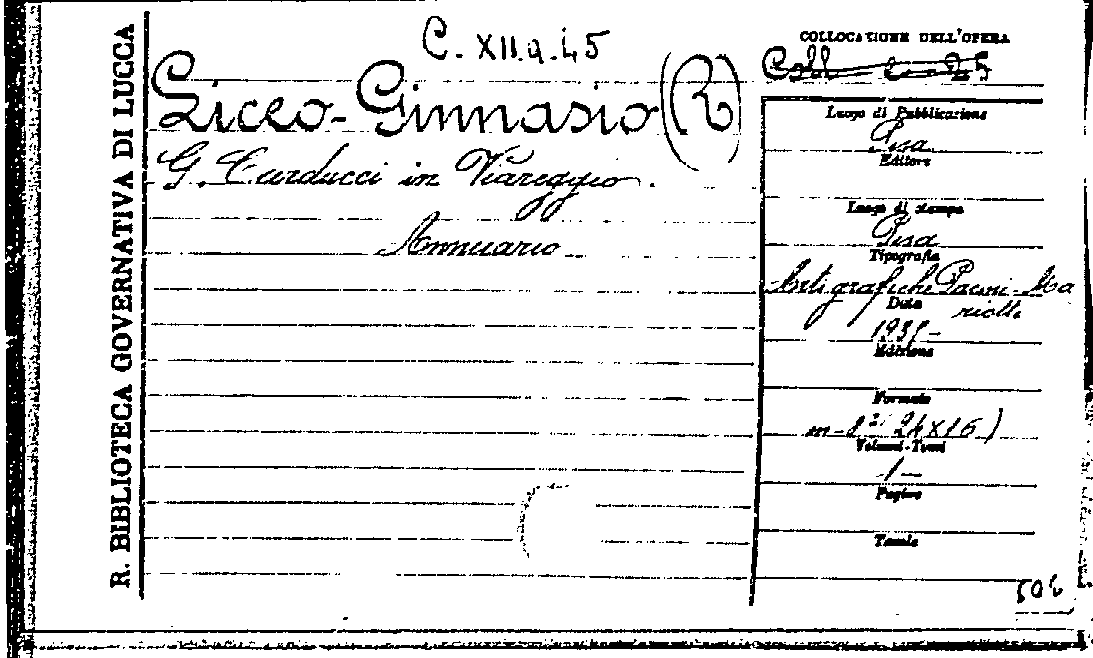 R. BIBLIOTECA GOVERNATIVA DI LUCCA
C. XII.a.45
Liceo-Ginnasio (R)
G. Carducci in Viareggio.
Annuario
COLLOCAZIONE DELL'OPERA
Coll
Luogo di Pubblicazione
Pisa
Editore
Luogo di stampa
Pisa
Tipografia
Arti grafiche Pacini-Ma
riotti
Data
Edizione
Formato
in-8° 24x16)
Volumi-Tomi
1-
Pagine
Tavole